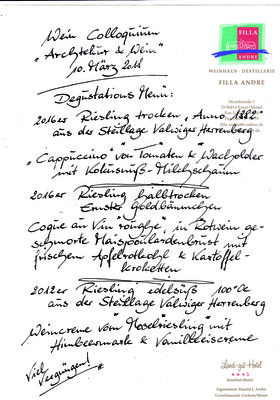 Wein Colloquium
"Architektur & Wein"
10. März 2018
FILLA
ANDRE
WEINHAUS - DESTILLERIE
FILLA ANDRE
Degustations Menü:
2016er Riesling trocken "Anno 1882"
aus der Steillage Valwiger Herrenberg
"Cappuccino" von Tomaten & Wacholder
mit Kokusnuß-Milchschaum
2016er Riesling halbtrocken
Ernster Goldbäumchen
Coque au Vin "rouge", in Rotwein ge-
schmorte Maispoulardenbrust mit
frischem Apfelrotkohl & Kartoffel-
kroketten
2012er Riesling edelsüß 100°Oe
aus der Steillage Valwiger Herrenberg
Weincreme vom Moselriesling mit
Himbeermark & Vanilleeiscreme
Viel
Vergnügen!
Land-gut-Hotel